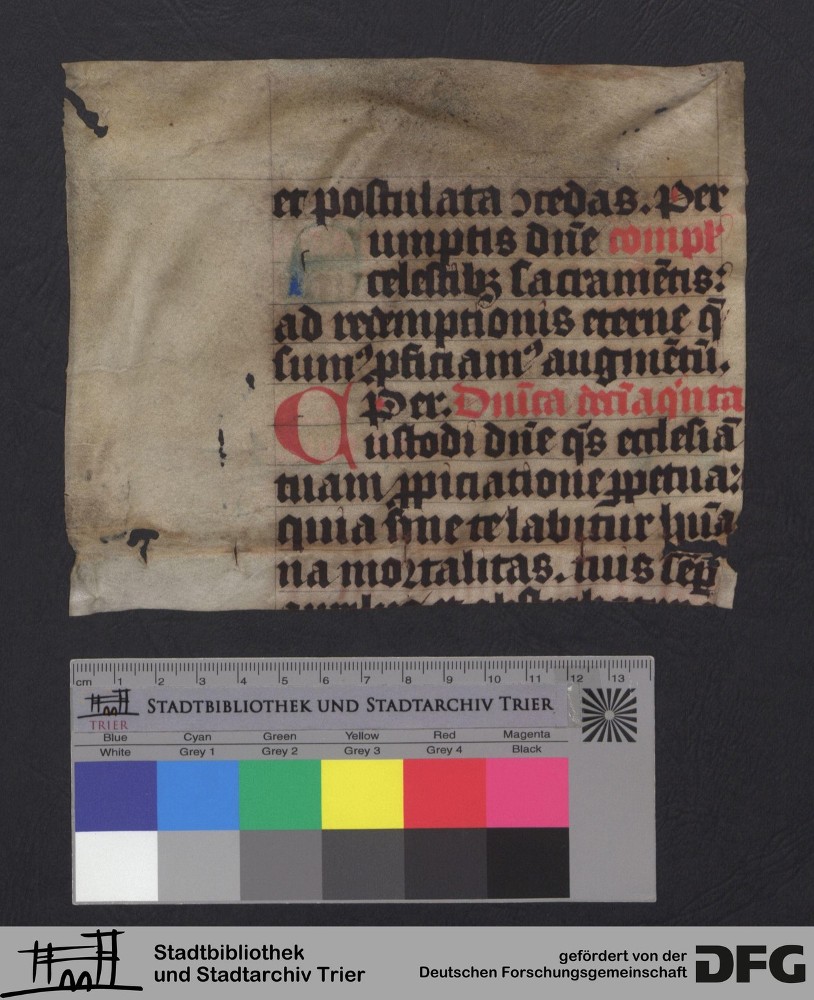 et postulata ꝯcedas. Per
Sumptis dn̄e compł
celestibꝫ sacramētis:
ad redemptionis eterne q̄
sumꝰ ꝓficiamꝰ augmētū.
Per. Dn̄ica deciāqͥnta
Custodi dn̄e q̄s ecclesiā
tuam ꝓpiciatione ꝑpetua:
quia sine te labitur hūa
na mortalitas. tuis sēꝑ
cm 1 2 3 4 5 6 7 8 9 10 11 12 13
STADTBIBLIOTHEK UND STADTARCHIV TRIER
TRIER
Blue Cyan Green Yellow Red Magenta
White Grey 1 Grey 2 Grey 3 Grey 4 Black
Stadtbibliothek
und Stadtarchiv Trier
gefördert von der
Deutschen Forschungsgemeinschaft
DFG